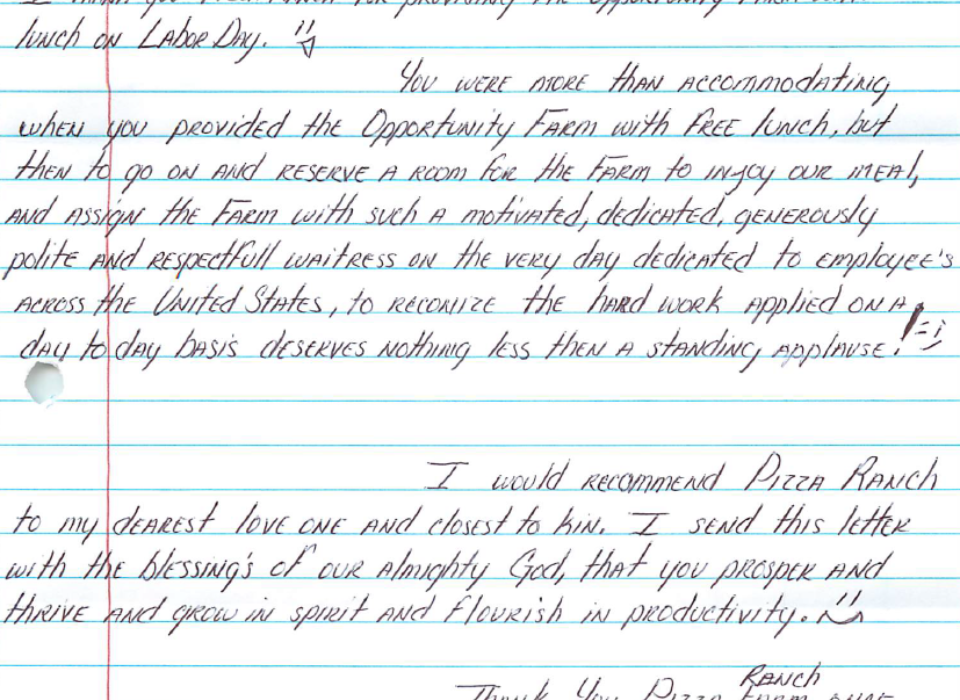 I thank you Pizza Ranch for providing the Opportunity Farm with
lunch on Labor Day.
You were more than accommodating
when you provided the Opportunity Farm with free lunch, but
then to go on and reserve a room for the Farm to injoy our meal,
and assign the Farm with such a motivated, dedicated, generously
polite and respectfull waitress on the very day dedicated to employee's
across the United States, to reconize the hard work applied on a
day to day basis deserves nothing less then a standing applause! =)
I would recommend Pizza Ranch
to my dearest love one and closest to kin. I send this letter
with the blessing's of our almighty God, that you prosper and
thrive and grow in spirit and flourish in productivity.
Ranch
Thank You Pizza Farm